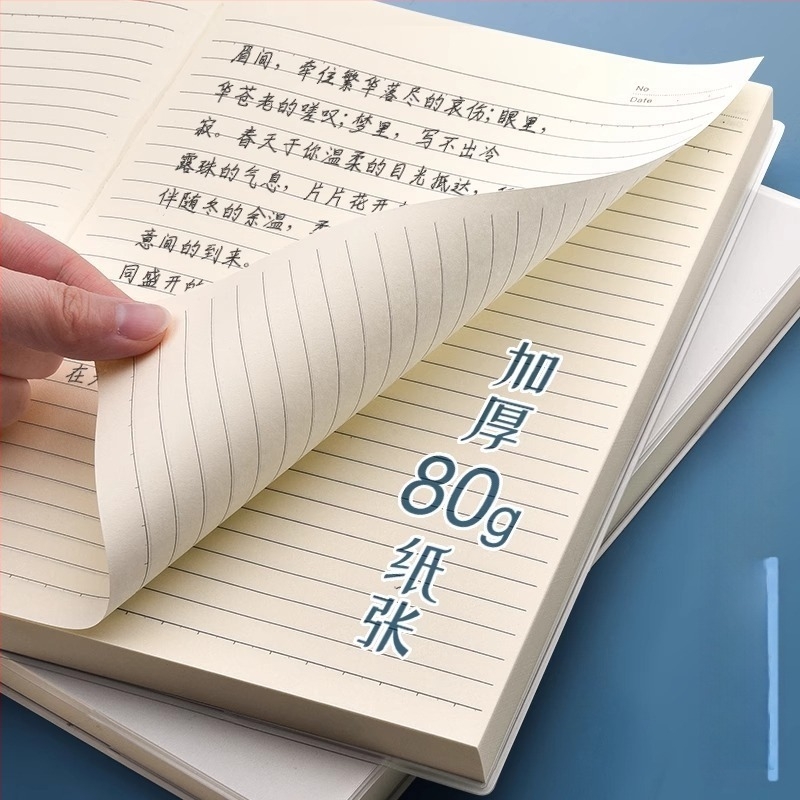 No
Date
眉间，牵住繁华落尽的哀伤；眼里，
华苍老的嗟叹；梦里，写不出冷
寂。春天于你温柔的目光抵达，
露珠的气息，片片花开
伴随冬的余温，
意间的到来。
同盛开的
在
加厚
80g
纸张